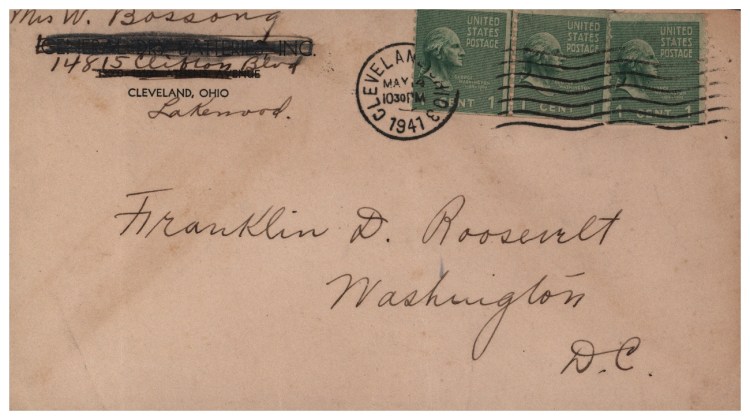 Mrs W. Bossong
BATTERIES, INC.
14815 Clifton Blvd
AVENUE
CLEVELAND, OHIO
Lakewood.
CLEVELAND OHIO 3
MAY
1030PM
1941
UNITED
STATES
POSTAGE
CENT 1
UNITED
STATES
POSTAGE
1 CENT 1
UNITED
STATES
POSTAGE
1 CENT 1
Franklin D. Roosevelt
Washington
D.C.